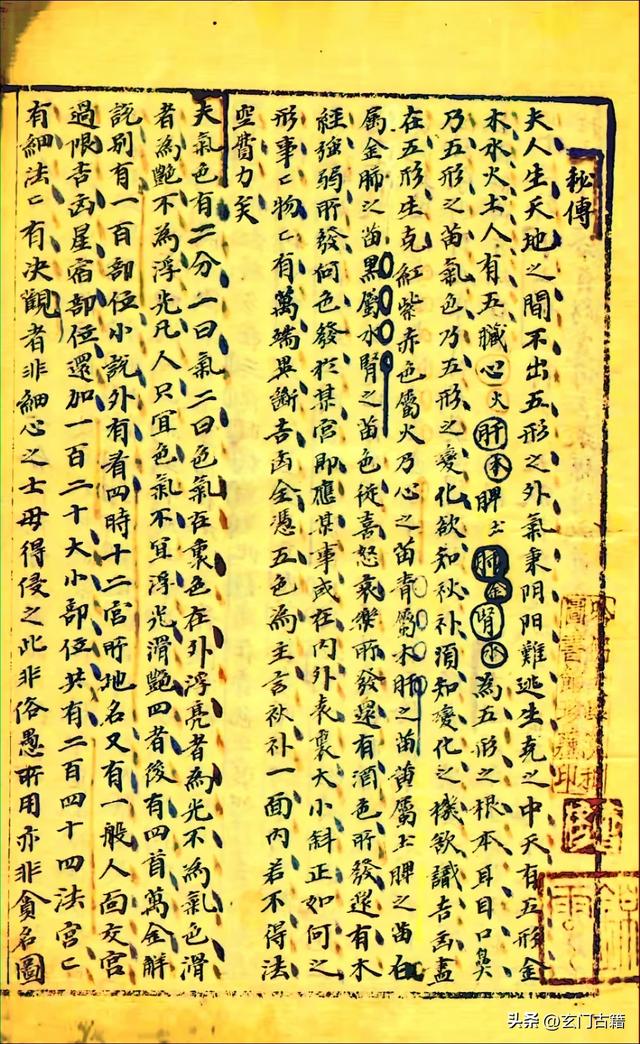 秘傳
夫人生天地之間不出五形之外氣禀阴阳難逃生克之中天有五形金
木水火土人有五臟心火肝木脾土肺金腎水為五形之根本耳目口鼻
乃五形之苗氣色乃五形之变化欲知秋补須知变化之機欲識吉凶盡
在五形生克紅紫赤色屬火乃心之苗青屬木肝之苗黃屬土脾之苗白
属金肺之苗黑屬水腎之苗色從喜怒哀樂所發還有酒色所發還有木
經強弱所發何色發於某宮即應某事或在內外表裏大小斜正如何之
形事亡物亡有萬端異斷吉凶全憑五色為主言秋补一面內若不得法
空費力矣
夫氣色有二分一曰氣二曰色氣在裏色在外浮亮者為光不為氣色滑
者為艷不為浮光凡人只宜色氣不宜浮光滑艷四者後有四首萬金解
説別有一百部位小説外有看四時十二宮所地名又有一般人面交宮
過限吉凶星宿部位還加一百二十大小部位共有二百四十四法宮亡
有細法亡有决觀者非細心之士毋得侵之此非俗愚所用亦非貪名圖
头条@玄门古籍